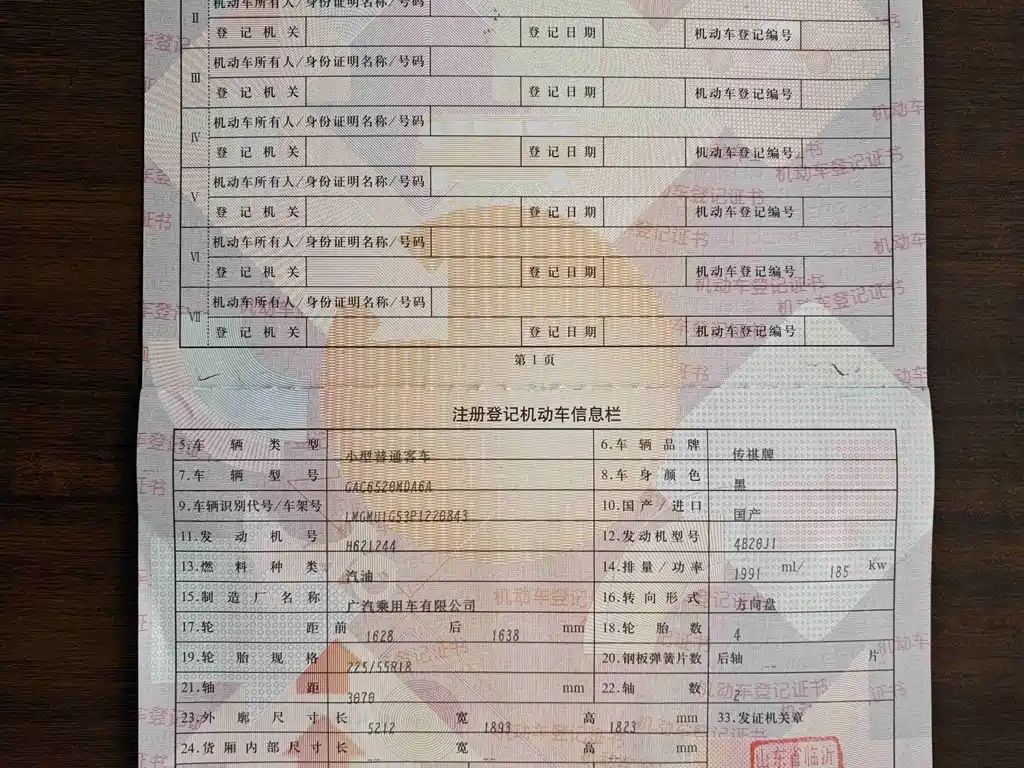 Ⅱ 机动车所有人/身份证明名称/号码
登记机关 登记日期 机动车登记编号
Ⅲ 机动车所有人/身份证明名称/号码
登记机关 登记日期 机动车登记编号
Ⅳ 机动车所有人/身份证明名称/号码
登记机关 登记日期 机动车登记编号
Ⅴ 机动车所有人/身份证明名称/号码
登记机关 登记日期 机动车登记编号
Ⅵ 机动车所有人/身份证明名称/号码
登记机关 登记日期 机动车登记编号
Ⅶ 机动车所有人/身份证明名称/号码
登记机关 登记日期 机动车登记编号
第1页
注册登记机动车信息栏
5.车辆类型 小型普通客车 6.车辆品牌 传祺牌
7.车辆型号 GAC6520MDA6A 8.车身颜色 黑
9.车辆识别代号/车架号 LMGMU1G53P1220843 10.国产/进口 国产
11.发动机号 H621244 12.发动机型号 4B20J1
13.燃料种类 汽油 14.排量/功率 1991 ml/ 185 Kw
15.制造厂名称 广汽乘用车有限公司 16.转向形式 方向盘
17.轮距 前 1628 后 1638 mm 18.轮胎数 4
19.轮胎规格 225/55R18 20.钢板弹簧片数 后轴 -- 片
21.轴距 3070 mm 22.轴数 2
23.外廓尺寸 长 5212 宽 1893 高 1823 mm 33.发证机关章
24.货厢内部尺寸 长 -- 宽 -- 高 -- mm
山东省临沂